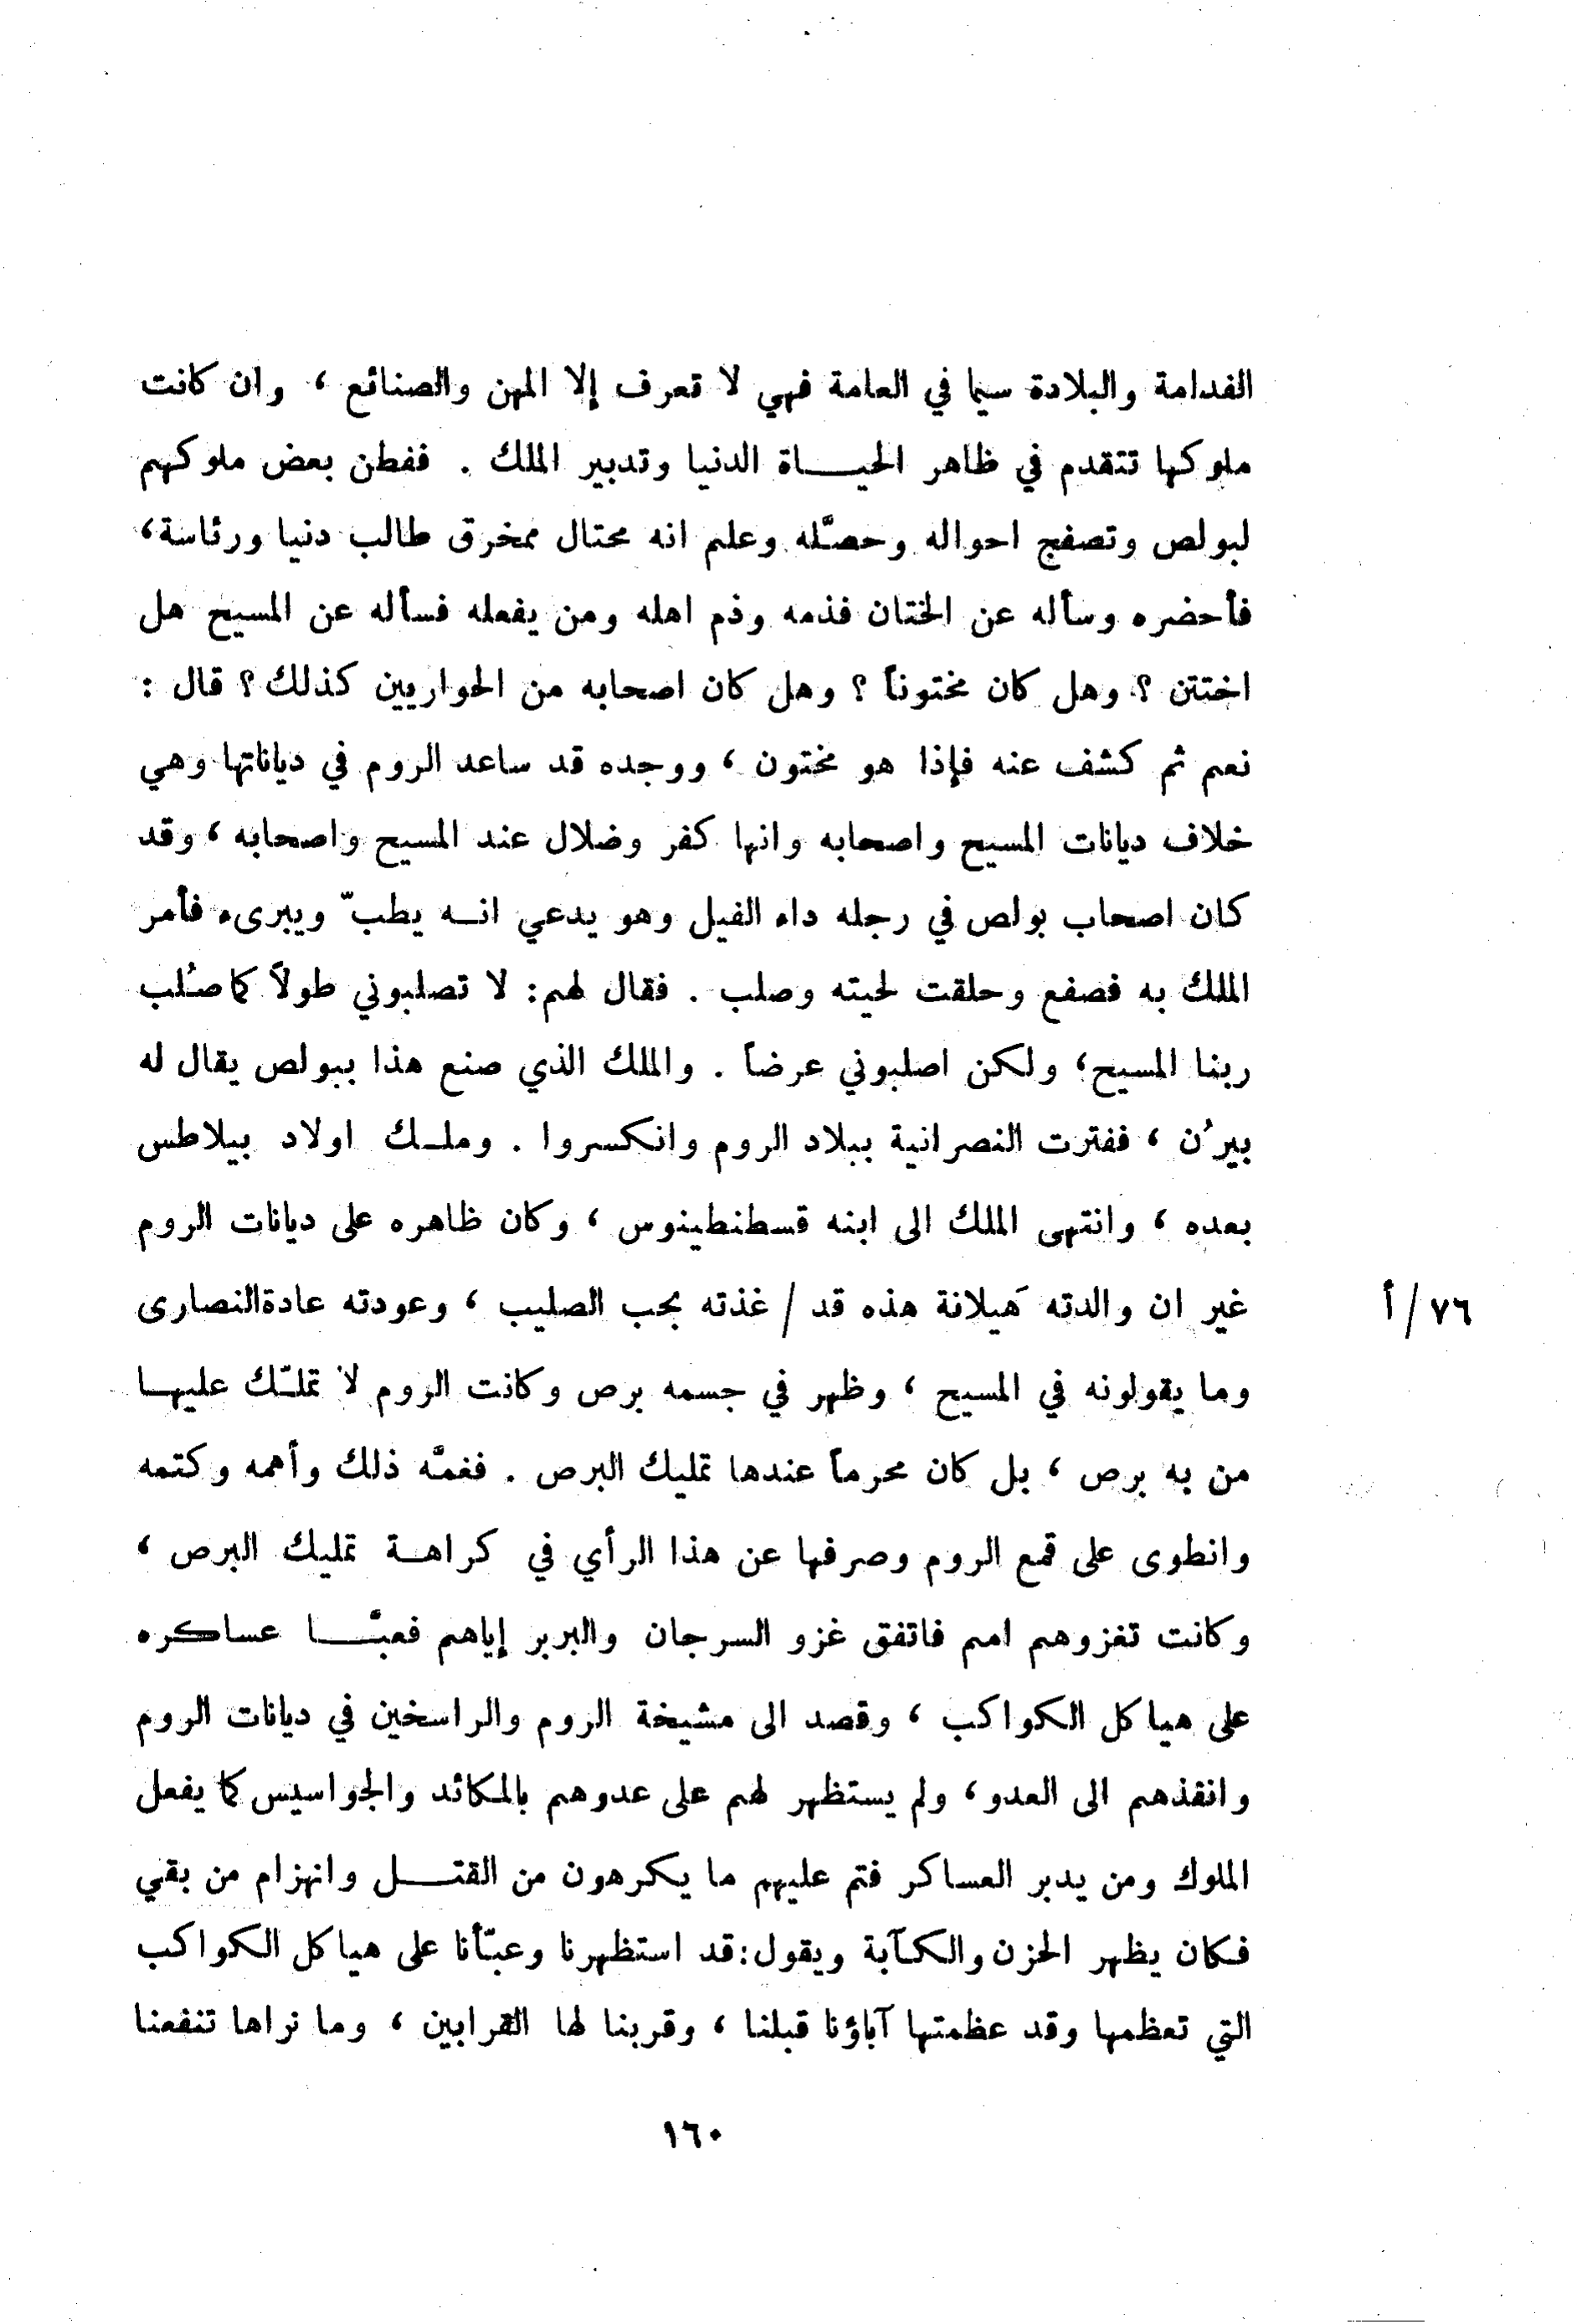 الفدامة والبلادة سيما في العامة فهي لا تعرف إلا المهن والصنائع ، وان كانت
ملوكها تتقدم في ظاهر الحيـــاة الدنيا وتدبير الملك . ففطن بعض ملوكهم
لبولص وتصفج احواله وحصّله وعلم انه محتال ممخرق طالب دنيا ورئاسة،
فأحضره وسأله عن الختان فذمه وذم اهله ومن يفعله فسأله عن المسيح هل
اختتن ؟ وهل كان مختوناً ؟ وهل كان اصحابه من الحواريين كذلك ؟ قال :
نعم ثم كشف عنه فإذا هو مختون ، ووجده قد ساعد الروم في دياناتها وهي
خلاف ديانات المسيح واصحابه وانها كفر وضلال عند المسيح واصحابه ، وقد
كان اصحاب بولص في رجله داء الفيل وهو يدعي انـــه يطبّ ويبرىء فأمر
الملك به فصفع وحلقت لحيته وصلب . فقال لهم: لا تصلبوني طولاً كما صُلب
ربنا المسيح، ولكن اصلبوني عرضاً . والملك الذي صنع هذا ببولص يقال له
بيرُن ، ففترت النصرانية ببلاد الروم وانكسروا . وملـك اولاد بيلاطس
بعده ، وانتهى الملك الى ابنه قسطنطينوس ، وكان ظاهره على ديانات الروم
غير ان والدته هَيلانة هذه قد / غذته بحب الصليب ، وعودته عادةالنصارى
٧٦/أ
وما يقولونه في المسيح ، وظهر في جسمه برص وكانت الروم لا تملـّك عليهـا
من به برص ، بل كان محرماً عندها تمليك البرص . فغمَّه ذلك وأهمه وكتمه
وانطوى على قمع الروم وصرفها عن هذا الرأي في كراهـة تمليك البرص ،
وكانت تغزوهم امم فاتفق غزو السرجان والبربر إياهم فعبَّـــأ عساكره
على هياكل الكواكب ، وقصد الى مشيخة الروم والراسخين في ديانات الروم
وانقذهم الى العدو، ولم يستظهر لهم على عدوهم بالمكائد والجواسيس كما يفعل
الملوك ومن يدبر العساكر فتم عليهم ما يكرهون من القتـــل وانهزام من بقي
فكان يظهر الحزن والكـآبة ويقول: قد استظهرنا وعبّأنا على هياكل الكواكب
التي تعظمها وقد عظمتها آباؤنا قبلنا ، وقربنا لها القرابين ، وما نراها تنفعنا
١٦٠